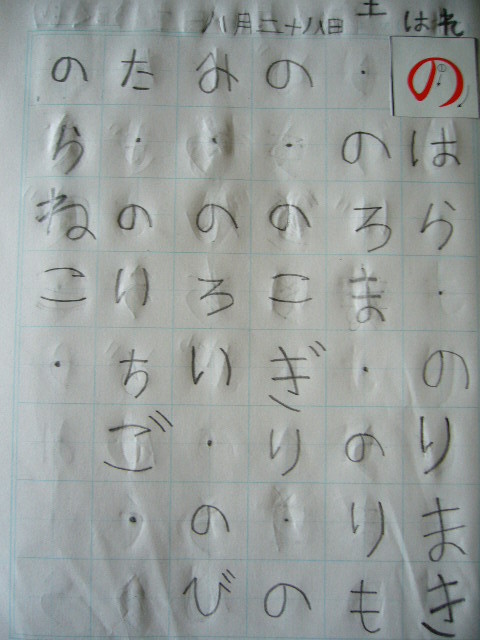 八月二十八日 土 はれ
のはら・のりまき
・のろま・のりも
の・のこぎり・の
み・のろい・のび
た・のいちご・
のらねこ・